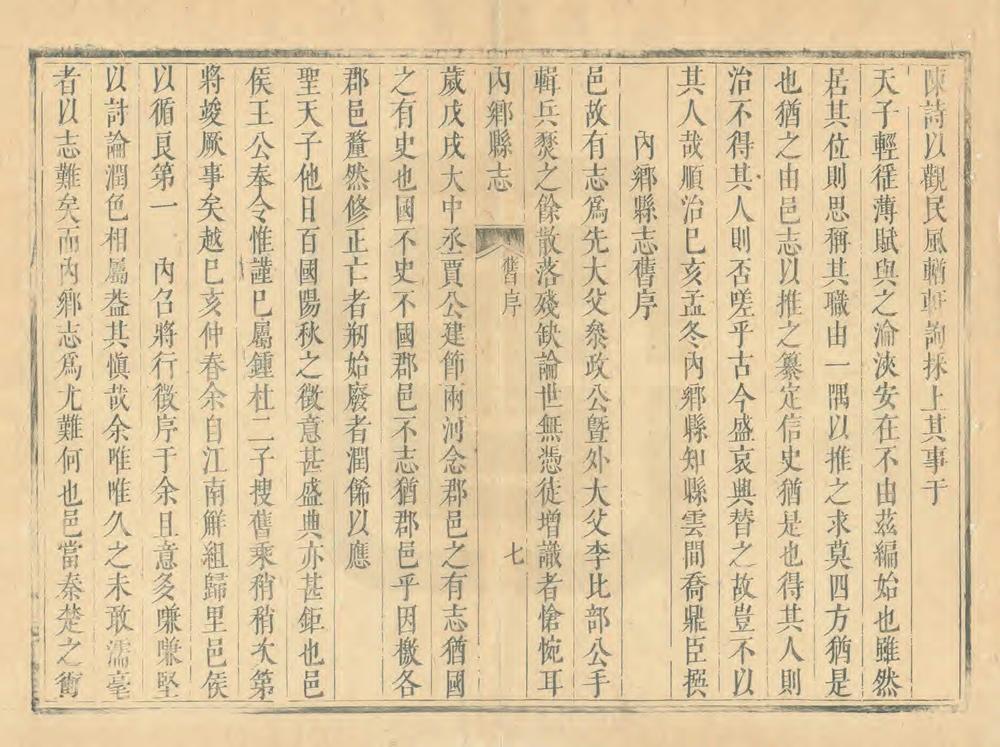 陳詩以觀民風輶軒詢採上其事于
天子輕徭薄賦與之淪浹安在不由茲編始也雖然
居其位則思稱其職由一隅以推之求莫四方猶是
也猶之由邑志以推之纂定信史猶是也得其人則
治不得其人則否嗟乎古今盛衰興替之故豈不以
其人哉順治巳亥孟冬內鄉縣知縣雲間喬鼎臣撰
內鄉縣志舊序
邑故有志爲先大父叅政公暨外大父李比部公手
輯兵燹之餘散落殘缺論世無憑徒增識者愴惋耳
內鄉縣志
舊序
七
歲戊戌大中丞賈公建節兩河念郡邑之有志猶國
之有史也國不史不國郡邑不志猶郡邑乎因檄各
郡邑釐然修正亡者剏始廢者潤餙以應
聖天子他日百國陽秋之徵意甚盛典亦甚鉅也邑
侯王公奉令惟謹巳屬鍾杜二子搜舊乘稍稍次第
將竣厥事矣越巳亥仲春余自江南解組歸里邑侯
以循良第一　內召將行徵序于余且意多嗛嗛堅
以討論潤色相屬葢其愼哉余唯唯久之未敢濡毫
者以志難矣而內鄉志爲尤難何也邑當秦楚之衝